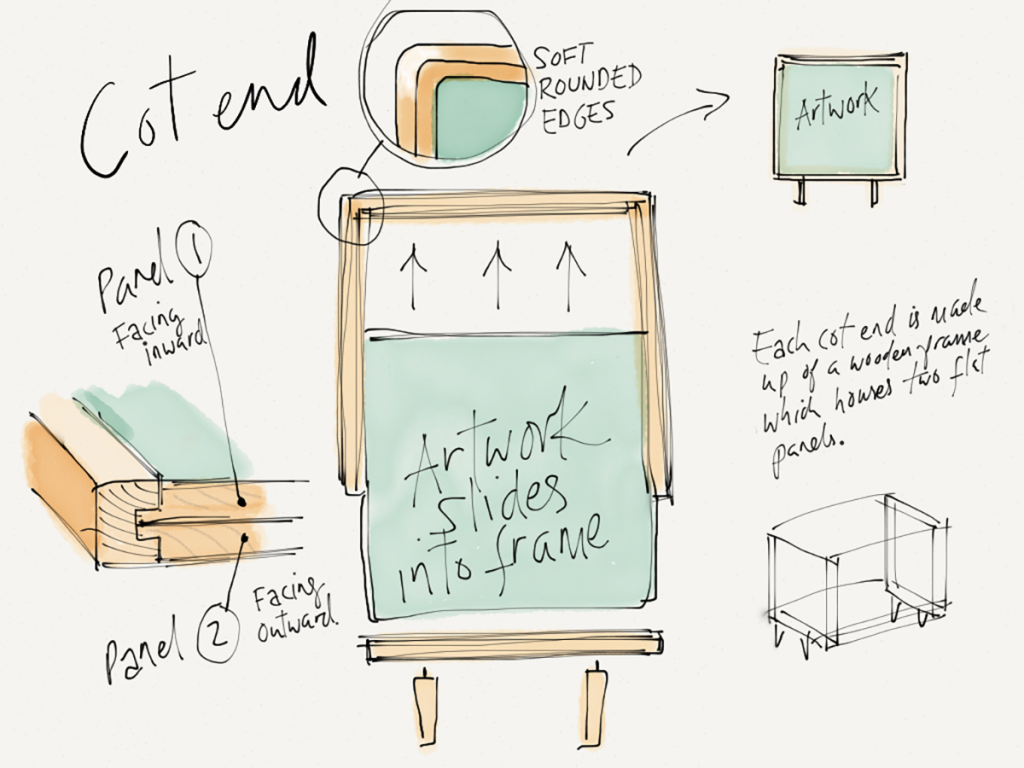 Cot end
SOFT
ROUNDED
EDGES
Artwork
Panel 1
Facing
inward
Each cot end is made
up of a wooden frame
which houses two flat
panels.
Artwork
slides
into frame
Panel 2
Facing
outward